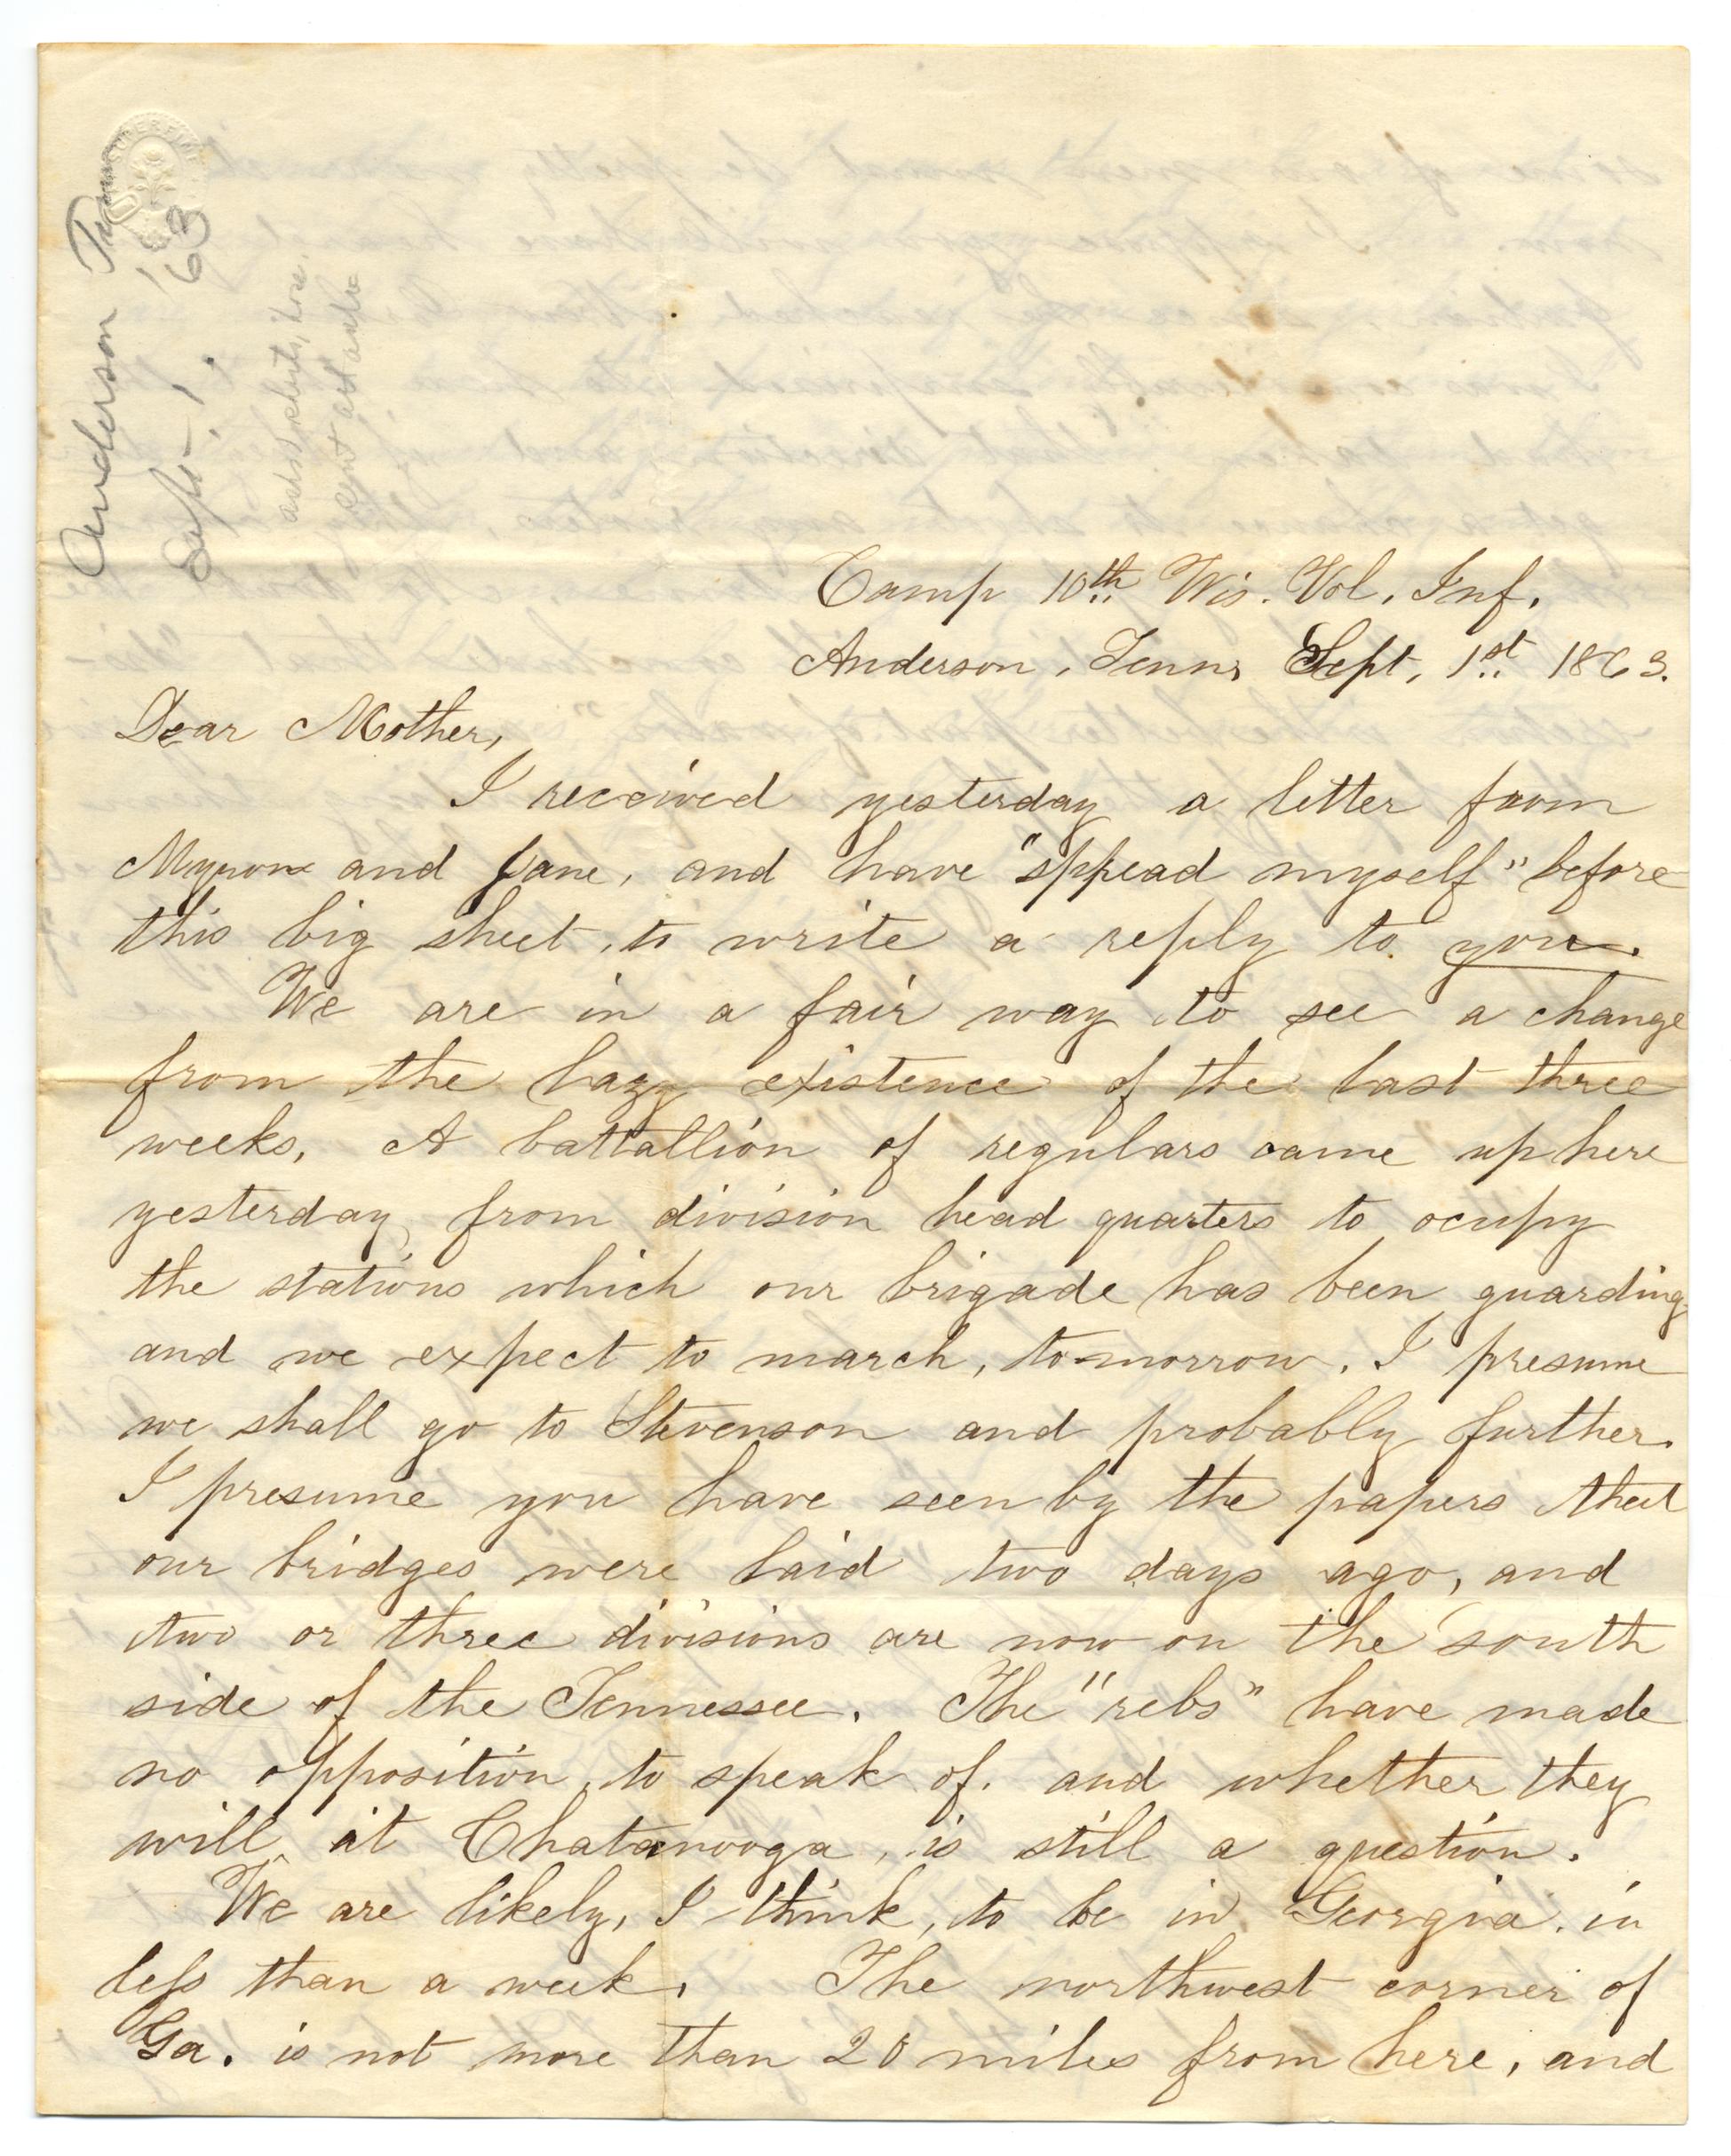 Anderson Tenn
Sept. 1. '63
Camp 10th Wis. Vol. Inf.
Anderson, Tenn, Sept, 1st 1863.
Dear Mother,
I received yesterday a letter from
Myron and Jane, and have "spread myself" before
this big sheet, to write a reply to you.
We are in a fair way to see a change
from the lazy existence of the last three
weeks. A battallion of regulars came up here
yesterday, from division head quarters to ocupy
the stations which our brigade has been guarding
and we expect to march, to-morrow. I presume
we shall go to Stevenson and probably further.
I presume you have seen by the papers that
our bridges were laid two days ago, and
two or three divisions are now on the south
side of the Tennessee. The "rebs" have made
no opposition, to speak of. and whether they
will, at Chatanooga, is still a question.
We are likely, I think, to be in Georgia. in
less than a week. The northwest corner of
Ga. is not more than 20 miles from here, and